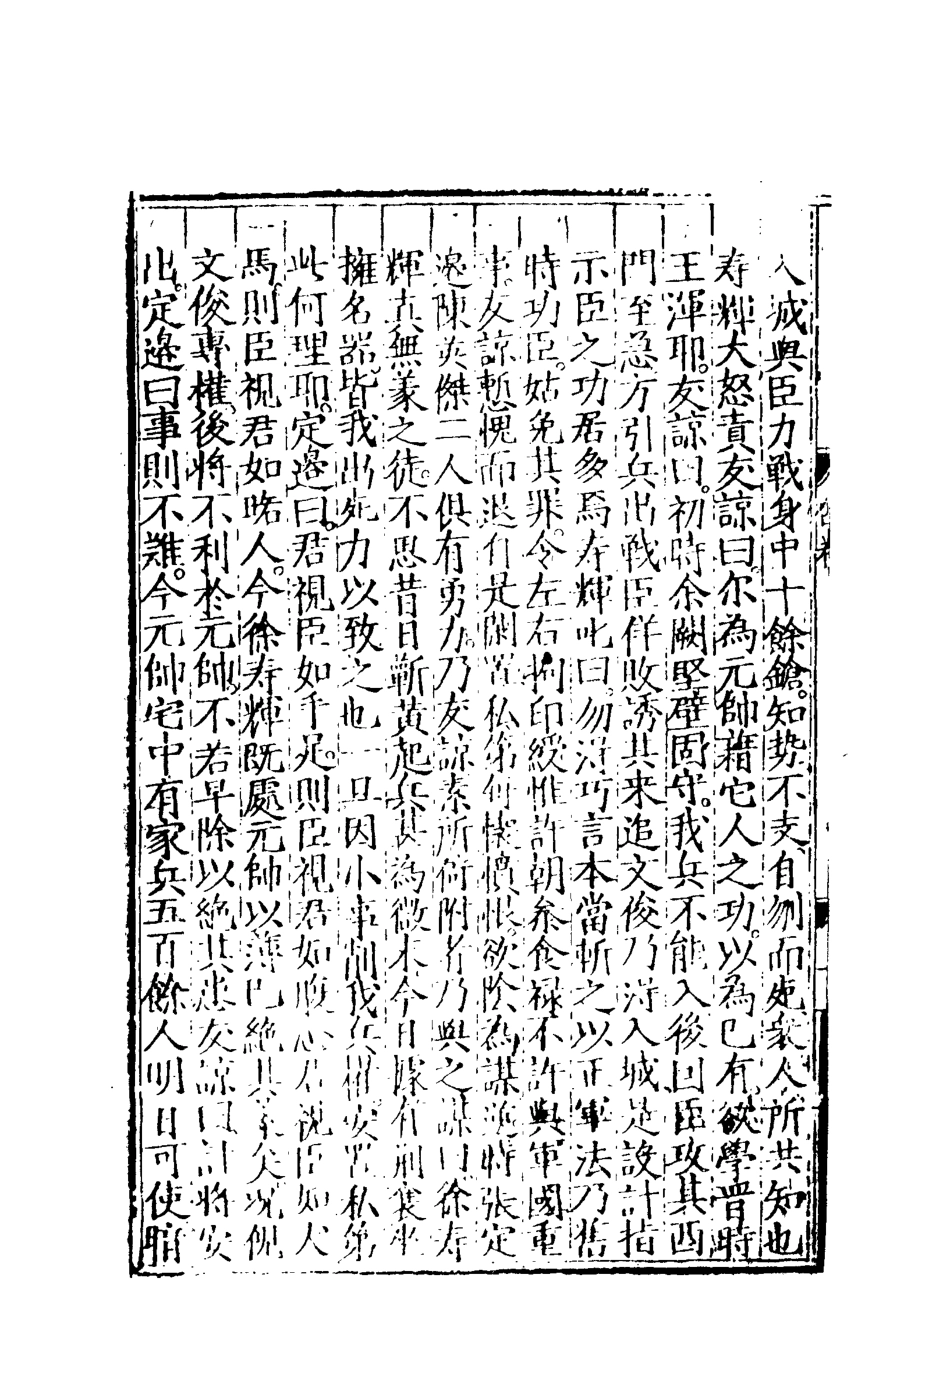 入城與臣力戰身中十餘鎗知势不支自刎而死衆人所共知也
寿輝大怒責友諒曰尔為元帥藉它人之功以為己有欲學晋時
王渾耶友諒曰初時余闕堅壁固守我兵不能入後因臣攻其西
門至急方引兵出戰臣佯敗誘其来追文俊乃淂入城是設計指
示臣之功居多焉寿輝叱曰勿淂巧言本當斬之以正軍法乃舊
時功臣姑免其罪令左右拘印綬惟許朝叅食禄不許與軍國重
事友諒慙愧而退自是閑置私第何懐憤恨欲陰為謀逆時張定
邉陳英傑二人俱有勇力乃友諒素所倚附者乃與之謀曰徐寿
輝真無義之徒不思昔日蘄黄起兵甚為微末今日據有荊襄坐
擁名器皆我出死力以致之也一旦因小事削我兵權安置私第
此何理耶定邉曰君視臣如手足則臣視君如腹心君視臣如犬
馬則臣視君如路人今徐寿輝既處元帥以薄已絶其義矣况倪
文俊專權後将不利於元帥不若早除以絶其患友諒曰計将安
出定邉曰事則不難今元帥宅中有家兵五百餘人明日可使